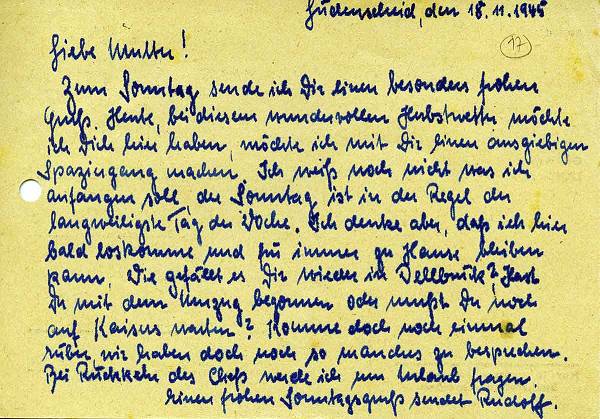 Lüdenscheid, den 18.11.1945
17
Liebe Mutter!
Zum Sonntag sende ich Dir einen besonders frohen
Gruß. Heute, bei diesem wundervollen Herbstwetter möchte
ich Dich hier haben, möchte ich mit Dir einen ausgiebigen
Spaziergang machen. Ich weiß noch nicht was ich
anfangen soll, der Sonntag ist in der Regel der
langweiligste Tag der Woche. Ich denke aber, daß ich hier
bald loskomme und für immer zu Hause bleiben
kann. Wie gefällt es Dir wieder in Dellbrück? Hast
Du mit dem Umzug begonnen oder mußt Du noch
auf Kaisers warten? Komme doch noch einmal
rüber, wir haben doch noch so manches zu besprechen.
Bei Rückkehr des Chefs werde ich um Urlaub fragen.
Einen frohen Sonntagsgruß sendet Rudolf.